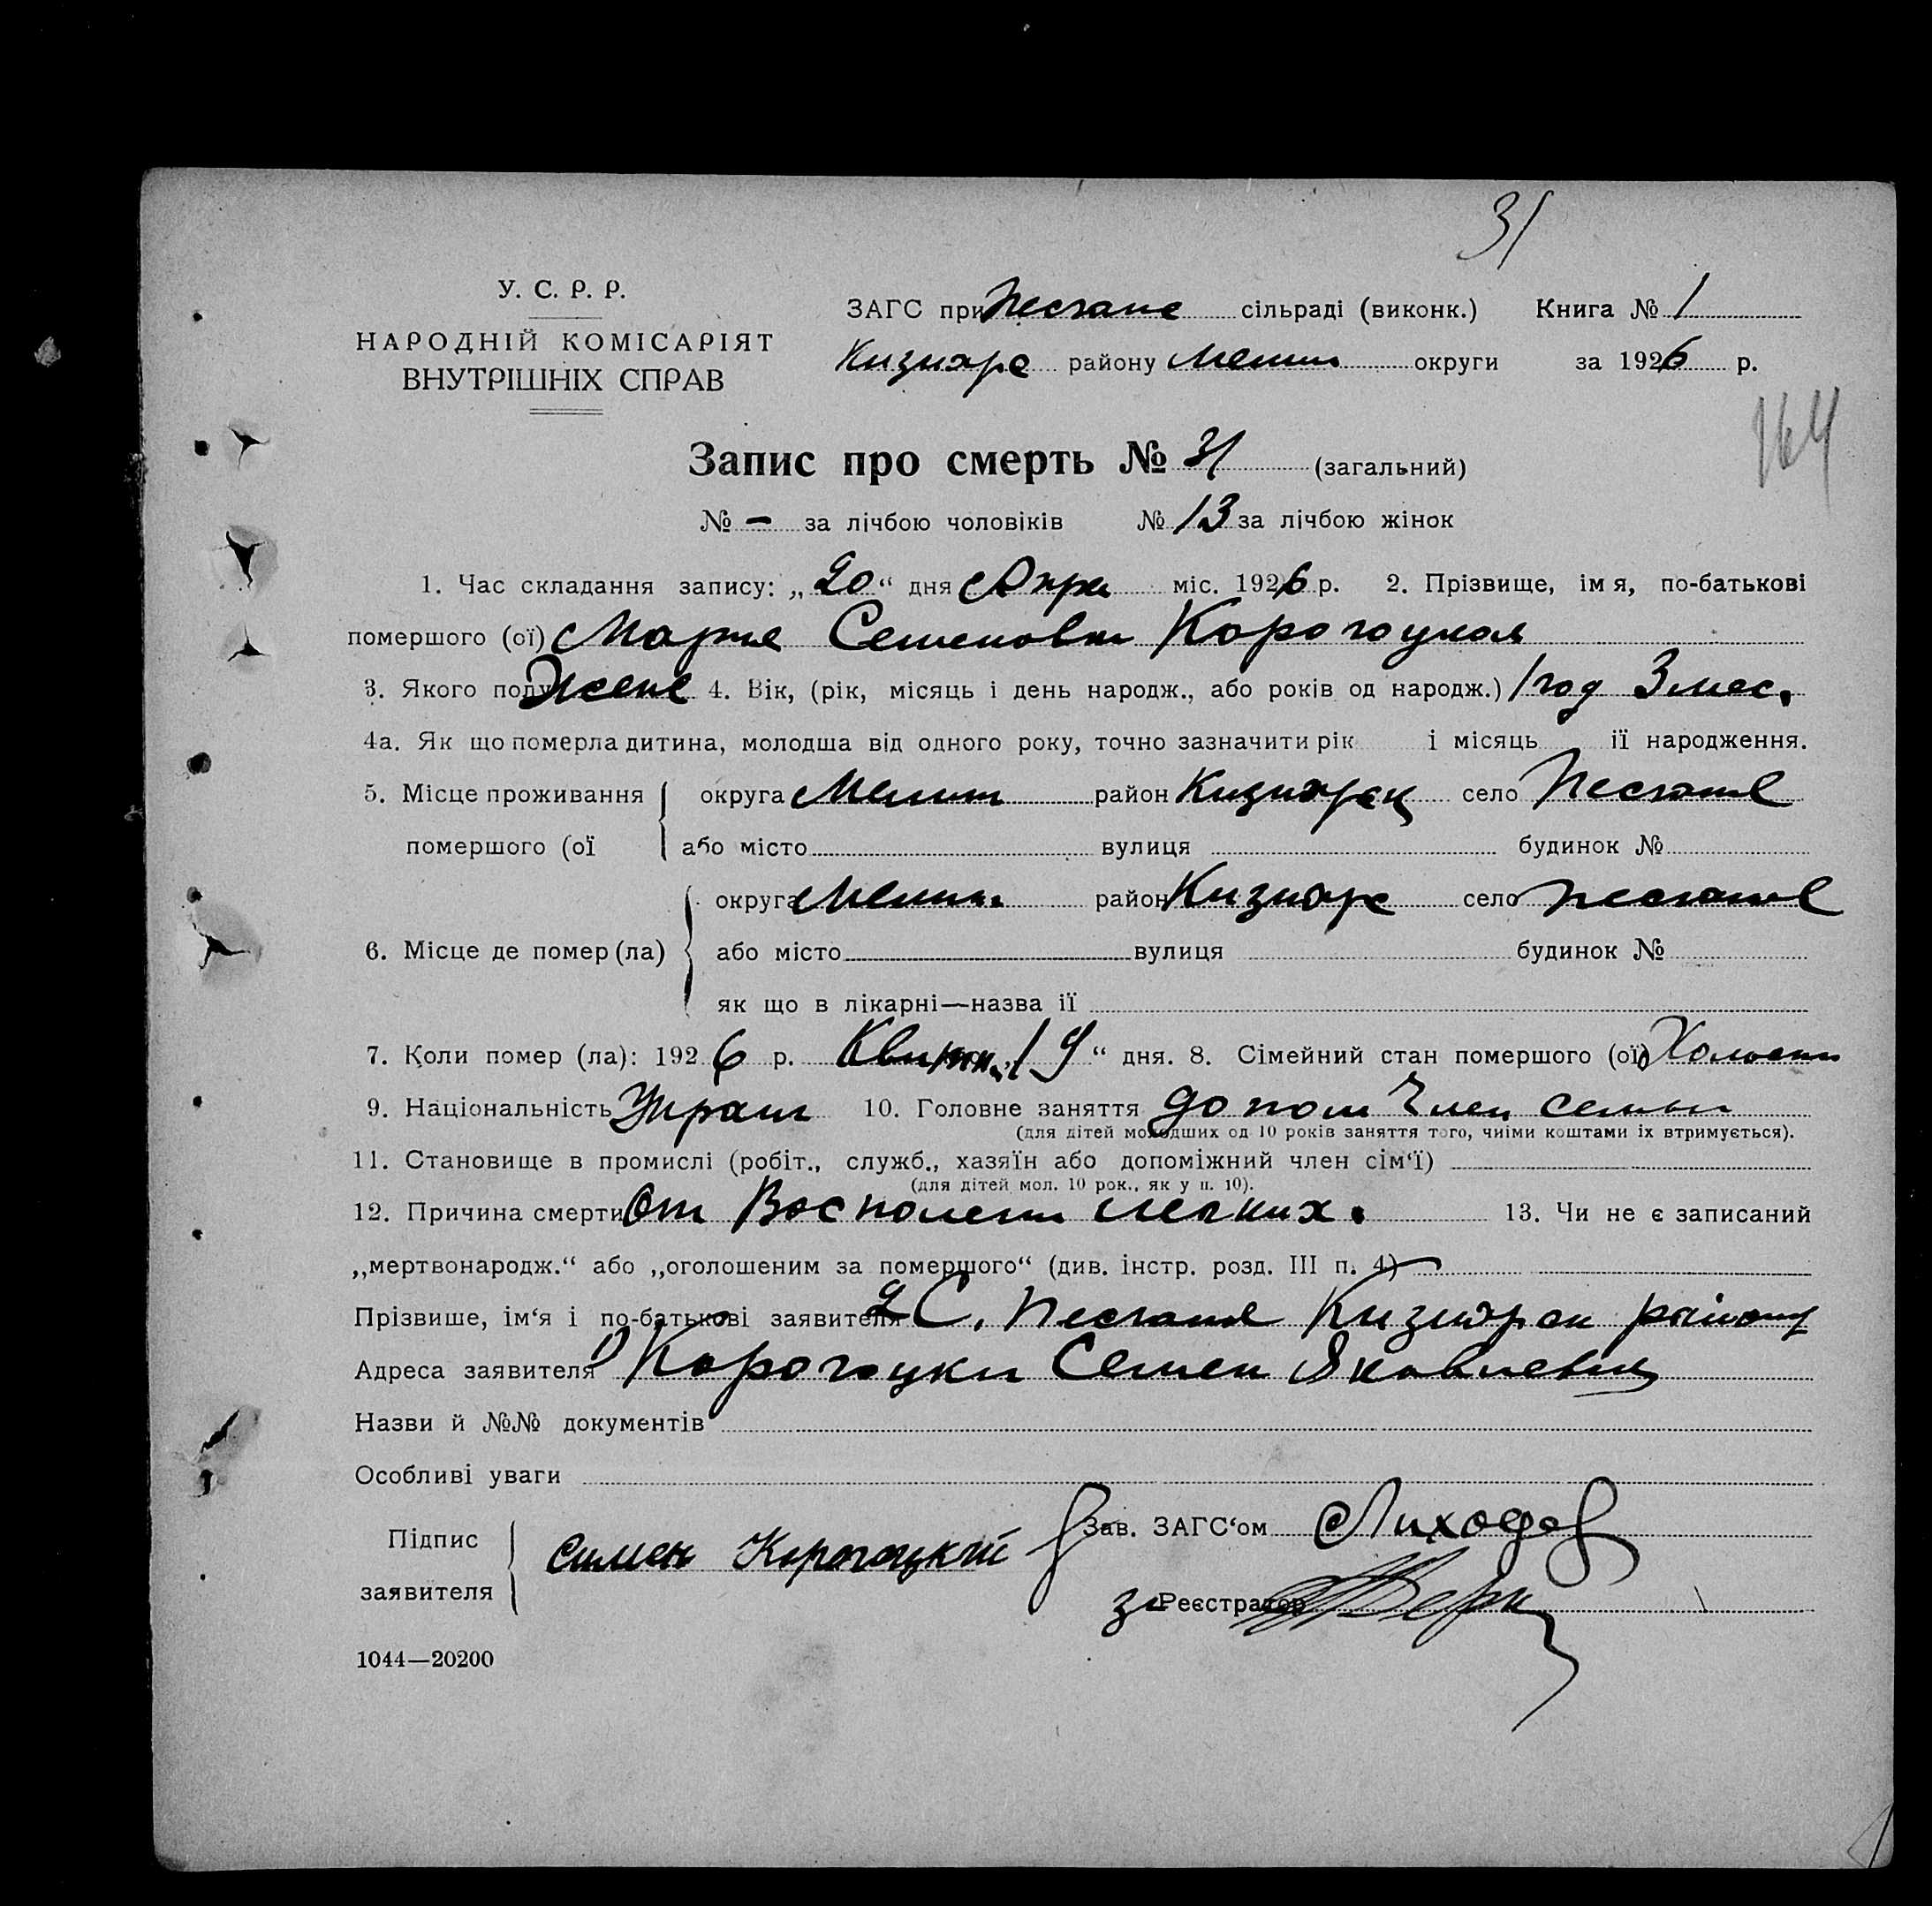 31
У. С. Р. Р.
НАРОДНІЙ КОМІСАРІЯТ
ВНУТРІШНІХ СПРАВ
ЗАГС при Песчане сільраді (виконк.) Книга № 1
Кизияре району Мелит округи за 1926 р.
164
Запис про смерть № 31 (загальний)
№ - за лічбою чоловіків № 13 за лічбою жінок
1. Час складання запису: „20“ дня Апре міс. 1926 р. 2. Прізвище, імя, по-батькові
помершого (ої) Мария Семеновна Корогоцкая
3. Якого полу Жене 4. Вік, (рік, місяць і день народж., або років од народж.) 1 год 3 мес.
4а. Як що померла дитина, молодша від одного року, точно зазначити рік і місяць її народження.
5. Місце проживання округа Мелит район Кизиярск село Песчане
помершого (ої або місто вулиця будинок №
округа Мелит район Кизияре село Песчане
6. Місце де помер (ла) або місто вулиця будинок №
як що в лікарні—назва її
7. Коли помер (ла): 1926 р. Квитн. 19“ дня. 8. Сімейний стан помершого (ої) Холост
9. Національність Украин 10. Головне заняття допом член семьи
(для дітей молодших од 10 років заняття того, чиїми коштами їх втримується).
11. Становище в промислі (робіт., служб., хазяїн або допоміжний член сім‘ї)
(для дітей мол. 10 рок., як у п. 10).
12. Причина смерти От Восполени легких. 13. Чи не є записаний
„мертвонародж.“ або „оголошеним за померщого“ (див. інстр. розд. III п. 4)
Прізвише, ім‘я і по-батькові заявителя С. Песчане Кизиярск району
Адреса заявителя Корогоцки Семен Яковлевич
Назви й №№ документів
Особливі уваги
Підпис
заявителя
Симен Корогоцкий
Зав. ЗАГС‘ом Лиходед
за Реєстратор
1044—20200